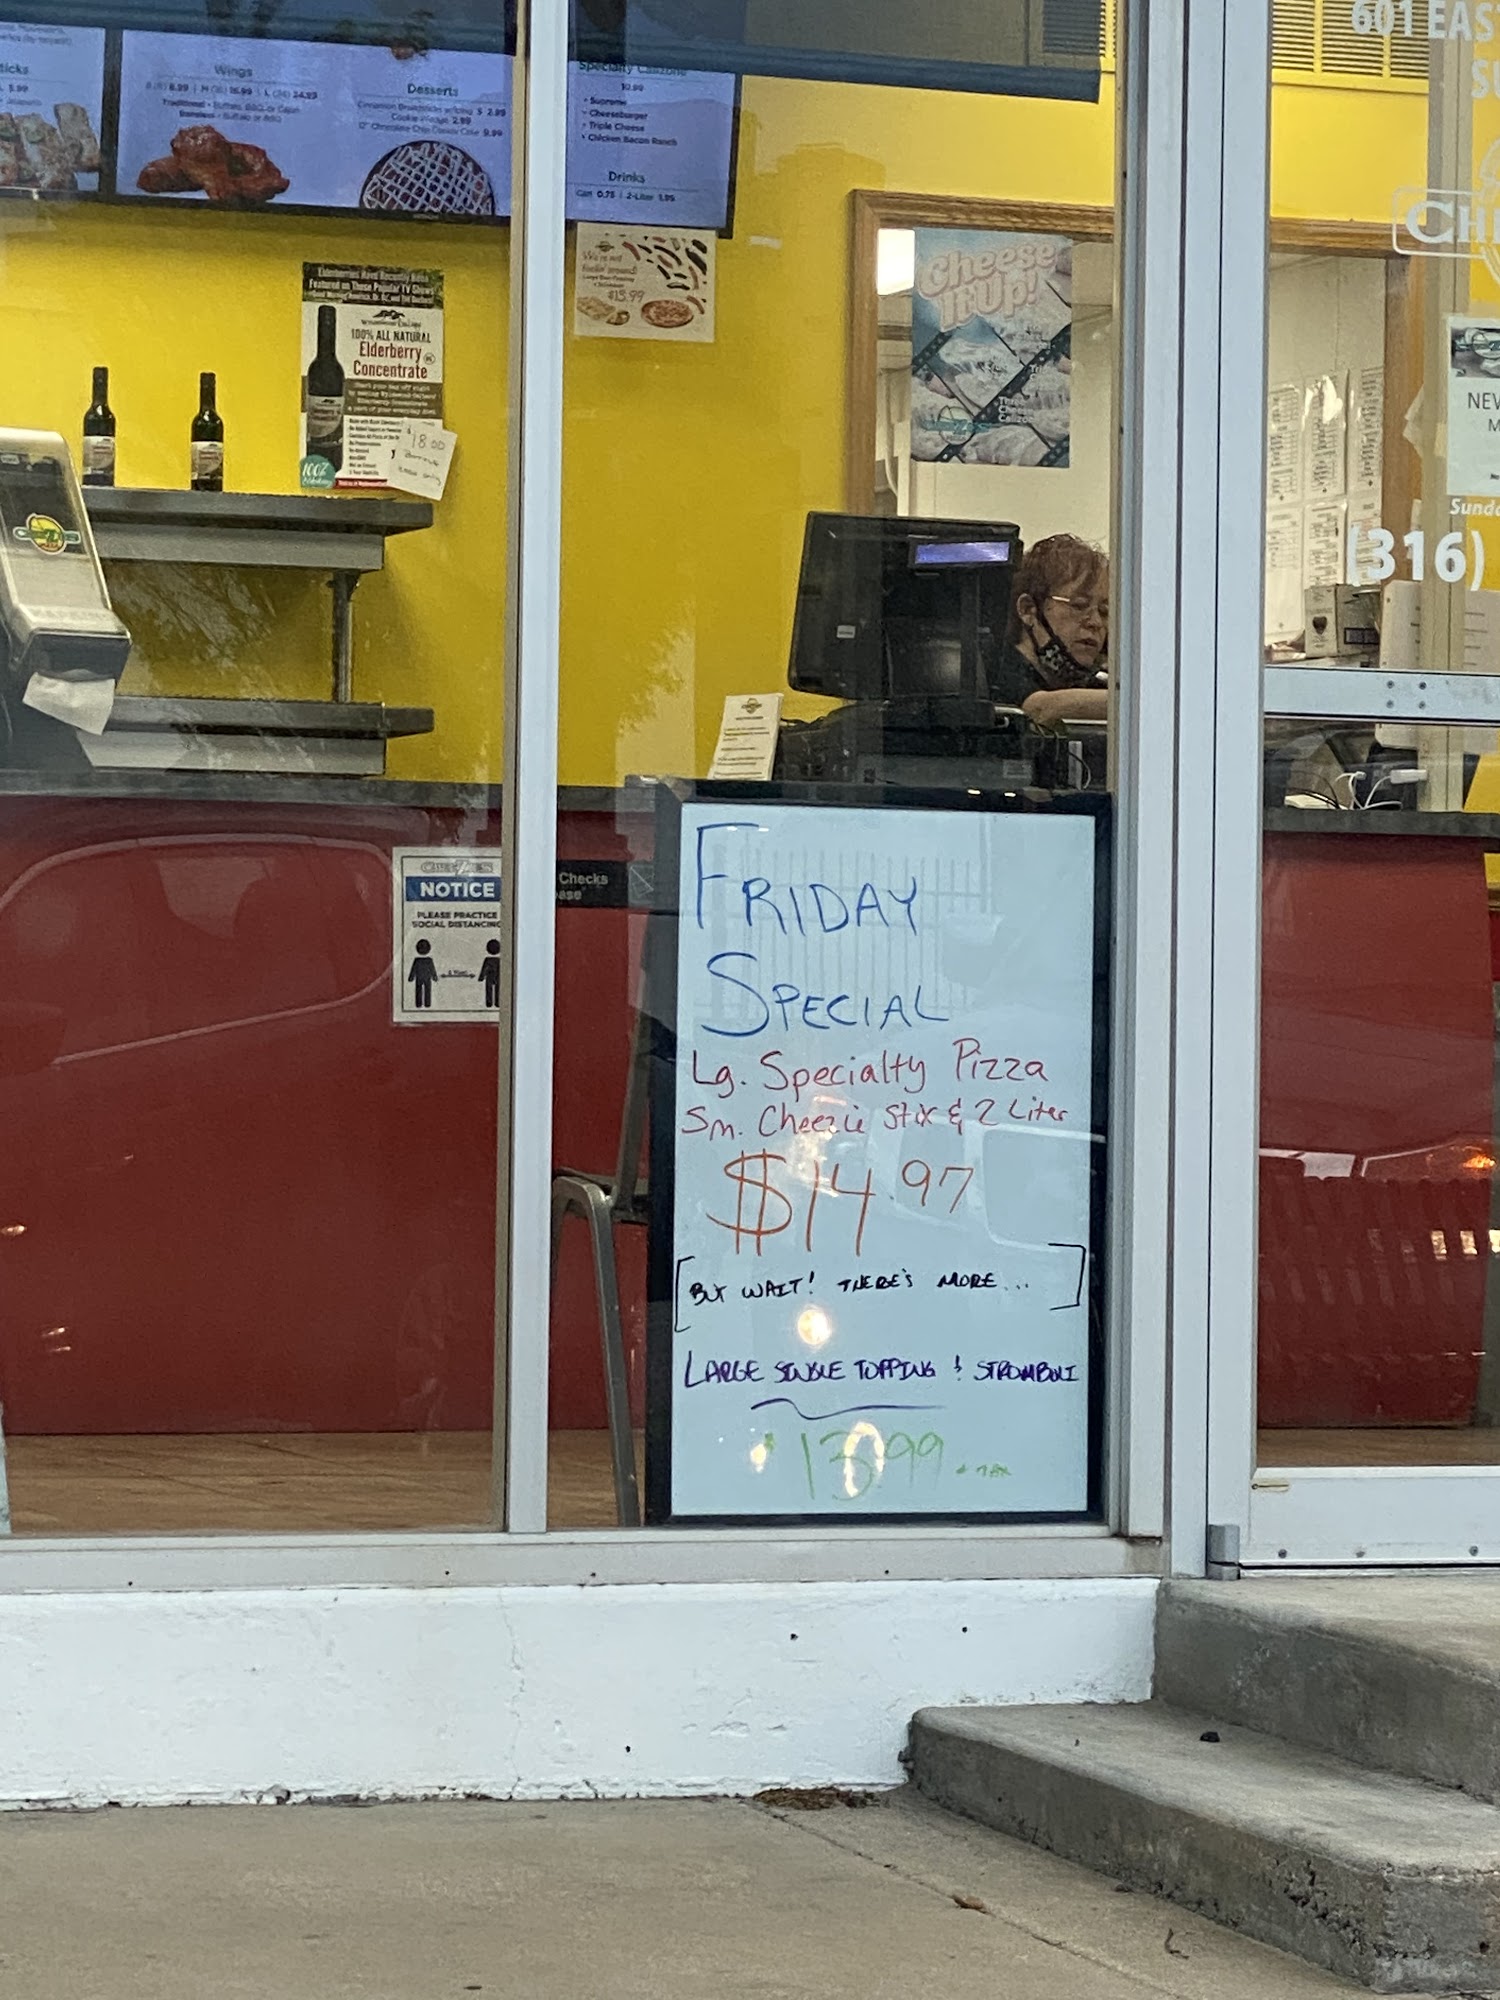 Wings
8 (8) 8.99 | M (16) 16.99 | L (24) 24.99
Traditional • Buffalo, BBQ or Cajun
Boneless • Buffalo or BBQ
Desserts
Cinnamon Breadsticks w/Icing $ 2.99
Cookie Wedge 2.99
12" Chocolate Chip Cookie Cake 9.99
Specialty Calzone
10.99
• Supreme
• Cheeseburger
• Triple Cheese
• Chicken Bacon Ranch
Drinks
Can 0.75 | 2-Liter 1.95
601 EAS
SU
CH
Elderberries Have Recently Been
Featured on These Popular TV Shows
100% ALL NATURAL
Elderberry
Concentrate
100%
$18.00
We're not
foolin' around!
$13.99
Cheese
It Up!
NEV
M
Sunda
(316)
NOTICE
PLEASE PRACTICE
SOCIAL DISTANCING
Checks
ase
FRIDAY
SPECIAL
Lg. Specialty Pizza
Sm. Cheezie Stix & 2 Liter
$14.97
[BUT WAIT! THERE'S MORE...]
LARGE SINGLE TOPPING & STROMBOLI
$13.99 + TAX